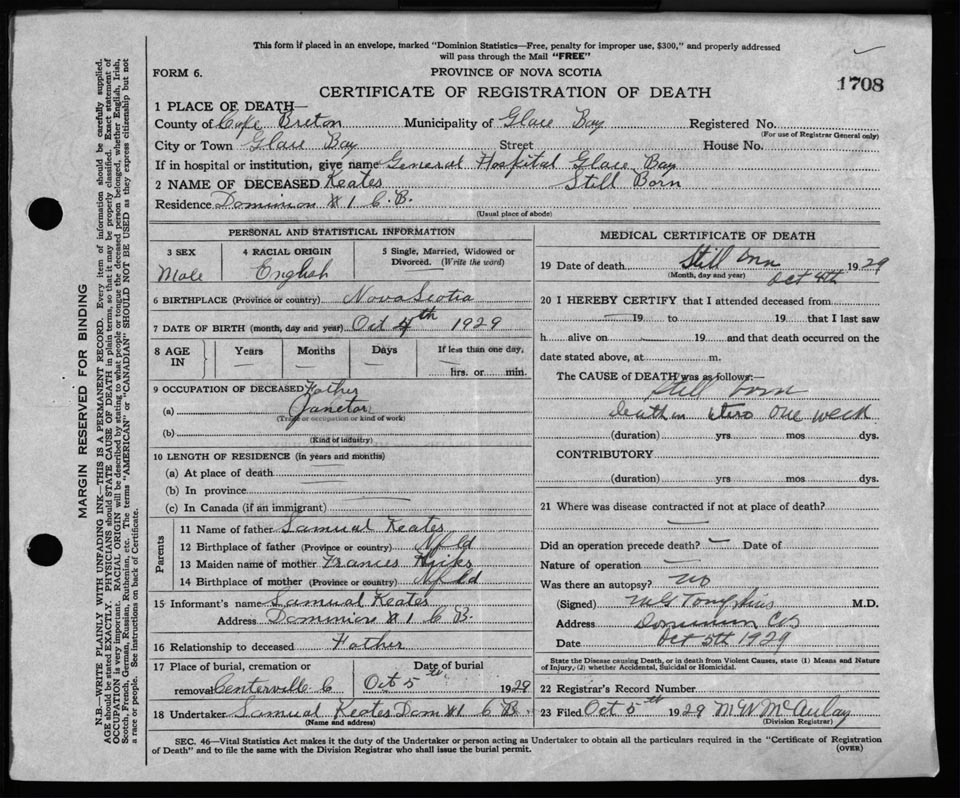 This form if placed in an envelope, marked "Dominion Statistics—Free, penalty for improper use, $300," and properly addressed
will pass through the Mail "FREE"
FORM 6.
PROVINCE OF NOVA SCOTIA
1708
CERTIFICATE OF REGISTRATION OF DEATH
1 PLACE OF DEATH—
County of Cape Breton Municipality of Glace Bay Registered No.
(For use of Registrar General only)
City or Town Glace Bay Street House No.
If in hospital or institution, give name General Hospital Glace Bay
2 NAME OF DECEASED Keates Still Born
Residence Dominion #1 C.B.
(Usual place of abode)
PERSONAL AND STATISTICAL INFORMATION
3 SEX 4 RACIAL ORIGIN 5 Single, Married, Widowed or
Divorced. (Write the word)
Male English
6 BIRTHPLACE (Province or country) Nova Scotia
7 DATE OF BIRTH (month, day and year) Oct 4th 1929
8 AGE IN Years Months Days If less than one day,
hrs. or min.
9 OCCUPATION OF DECEASED Father
(a) Janetor
(Trade or occupation or kind of work)
(b)
(Kind of industry)
10 LENGTH OF RESIDENCE (in years and months)
(a) At place of death
(b) In province
(c) In Canada (if an immigrant)
Parents
11 Name of father Samual Keates
12 Birthplace of father (Province or country) Nfld
13 Maiden name of mother Frances
14 Birthplace of mother (Province or country) Nfld
15 Informant's name Samual Keates
Address Dominion #1 C B.
16 Relationship to deceased Father
17 Place of burial, cremation or Date of burial
removal Centerville C Oct 5th 1929
18 Undertaker Samual Keates Dom #1 C B.
(Name and address)
MEDICAL CERTIFICATE OF DEATH
19 Date of death Still born 1929
(Month, day and year) Oct 4th
20 I HEREBY CERTIFY that I attended deceased from
19 to 19 that I last saw
h alive on 19 and that death occurred on the
date stated above, at m.
The CAUSE of DEATH was as follows:—
Still born
death in utero one week
(duration) yrs. mos dys.
CONTRIBUTORY
(duration) yrs mos dys.
21 Where was disease contracted if not at place of death?
Did an operation precede death? — Date of
Nature of operation —
Was there an autopsy? no
(Signed) M G Tompkins M.D.
Address Dominion CB
Date Oct 5th 1929
State the Disease causing Death, or in death from Violent Causes, state (1) Means and Nature
of Injury, (2) whether Accidental, Suicidal or Homicidal.
22 Registrar's Record Number
23 Filed Oct 5th 1929 M W McAulay
(Division Registrar)
SEC. 46—Vital Statistics Act makes it the duty of the Undertaker or person acting as Undertaker to obtain all the particulars required in the "Certificate of Registration
of Death" and to file the same with the Division Registrar who shall issue the burial permit.
(OVER)
MARGIN RESERVED FOR BINDING
N.B.—WRITE PLAINLY WITH UNFADING INK—THIS IS A PERMANENT RECORD. Every item of information should be carefully supplied.
AGE should be stated EXACTLY. PHYSICIANS should STATE CAUSE OF DEATH in plain terms, so that it may be properly classified. Exact statement of
OCCUPATION is very important. RACIAL ORIGIN will be described by stating to what people or tongue the deceased person belonged, whether English, Irish,
Scotch, French, German, Russian, Ruthenian, etc. The terms "AMERICAN" or "CANADIAN" SHOULD NOT BE USED as they express citizenship but not
a race or people. See instructions on back of Certificate.